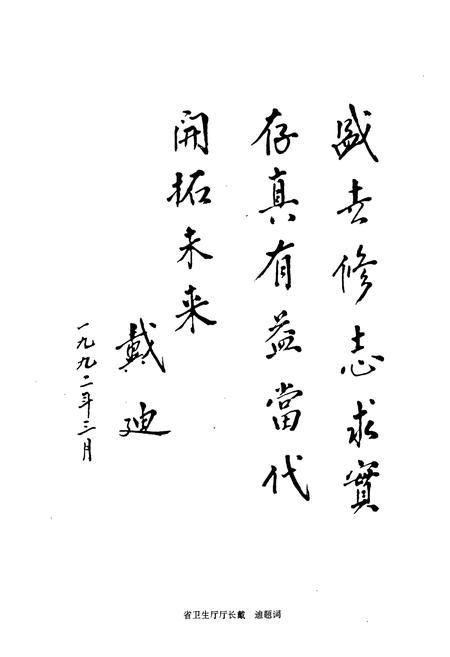 盛世修志求實
存真有益當代
開拓未来
戴迪
一九九二年三月
省卫生厅厅长戴　迪题词